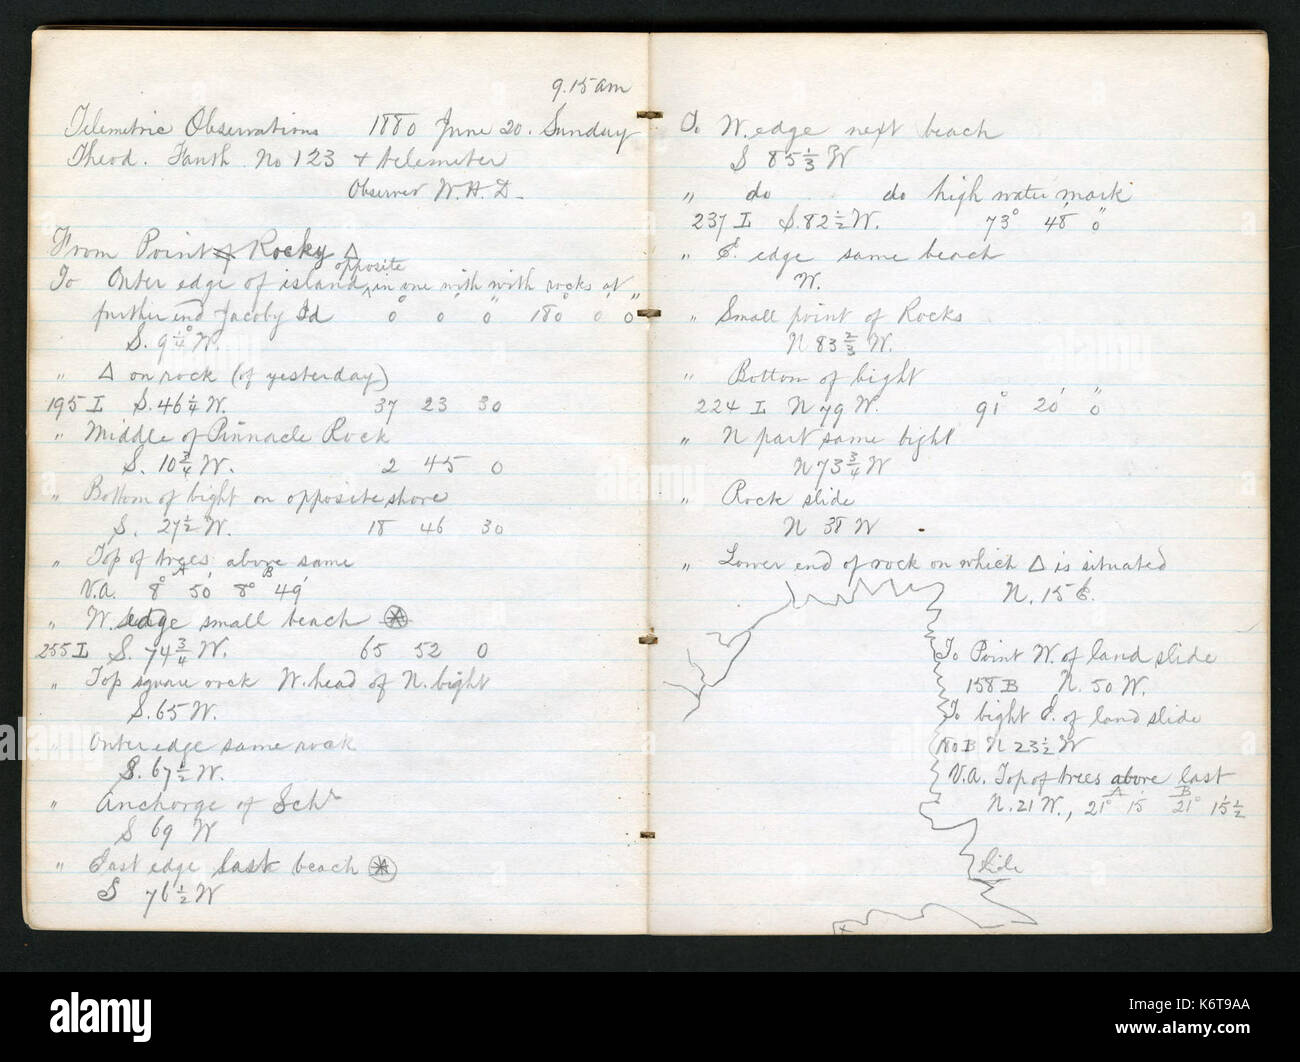 9.15 am
Telemetric Observations 1880 June 20. Sunday
Theod. Fauth No 123 + telemeter
Observer W.H.D.
From Point of Rocky △
opposite
To Outer edge of island, in one with with rocks at
further end Jacoby Id 0° 0' 0" 180° 0' 0"
S. 9 1/4° W.
" △ on rock (of yesterday)
195 I S. 46 1/4 W. 37 23 30
" Middle of Pinnacle Rock
S. 10 3/4 W. 2 45 0
" Bottom of bight on opposite shore
S. 27 1/2 W. 18 46 30
" Top of trees above same
A B
V.A. 8° 50' 8° 49'
" W. edge small beach
255 I S. 74 3/4 W. 65 52 0
" Top square rock W. head of N. bight
S. 65 W.
" Outer edge same rock
S. 67 1/2 W.
" Anchorge of Schr
S 69 W
" East edge last beach
S 76 1/2 W
To W. edge next beach
S 85 1/3 W
" do do high water mark
237 I S. 82 1/2 W. 73° 48' 0"
" E. edge same beach
W.
" Small point of Rocks
N 83 2/3 W.
" Bottom of bight
224 I N 79 W. 91° 20' 0"
" N part same bight
N 73 3/4 W
" Rock slide
N 38 W
" Lower end of rock on which △ is situated
N. 15 E.
To Point W. of land slide
158 B N. 50 W.
To bight E. of land slide
180 B N 23 1/2 W
V.A. Top of trees above last
A B
N. 21 W., 21° 15' 21° 15 1/2'
Slide
alamy
K6T9AA
www.alamy.com